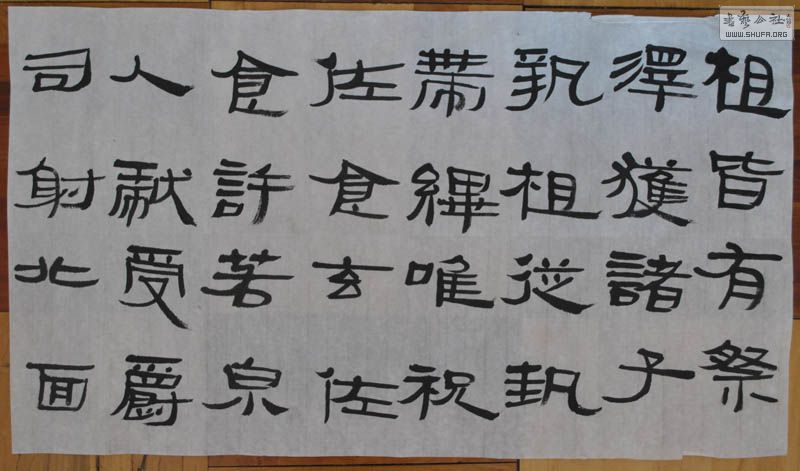 柤皆有祭
澤獲諸子
執柤從執
帶縪唯祝
佐食玄佐
食許若泉
人獻受爵
司射北面
書藝公社
WWW.SHUFA.ORG